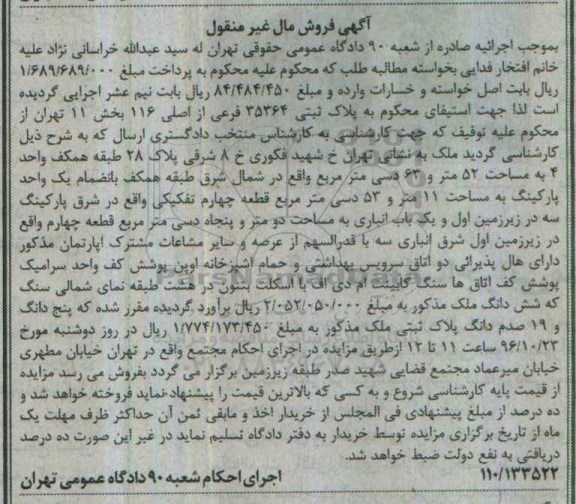 آگهی فروش مال غیر منقول
بموجب اجرائیه صادره از شعبه ۹۰ دادگاه عمومی حقوقی تهران له سید عبدالله خراسانی نژاد علیه
خانم افتخار فدایی بخواسته مطالبه طلب که محکوم علیه محکوم به پرداخت مبلغ ۱/۶۸۹/۶۸۹/۰۰۰
ریال بابت اصل خواسته و خسارات وارده و مبلغ ۸۴/۴۸۴/۴۵۰ ریال بابت نیم عشر اجرایی گردیده
است لذا جهت استیفای محکوم به پلاک ثبتی ۳۵۳۶۴ فرعی از اصلی ۱۱۶ بخش ۱۱ تهران از
محکوم علیه توقیف که جهت کارشناسی به کارشناس منتخب دادگستری ارسال که به شرح ذیل
کارشناسی گردید ملک به نشانی تهران خ شهید فکوری خ ۸ شرقی پلاک ۲۸ طبقه همکف واحد
۴ به مساحت ۵۲ متر و ۶۳ دسی متر مربع واقع در شمال شرق طبقه همکف بانضمام یک واحد
پارکینگ به مساحت ۱۱ متر و ۵۳ دسی متر مربع قطعه چهارم تفکیکی واقع در شرق پارکینگ
سه در زیرزمین اول و یک باب انباری به مساحت دو متر و پنجاه دسی متر مربع قطعه چهارم واقع
در زیرزمین اول شرق انباری سه با قدرالسهم از عرصه و سایر مشاعات مشترک اپارتمان مذکور
دارای هال پذیرائی دو اتاق سرویس بهداشتی و حمام آشپزخانه اوپن پوشش کف واحد سرامیک
پوشش کف اتاق ها سنگ کابینت ام دی اف با اسکلت بتون در هشت طبقه نمای شمالی سنگ
که شش دانگ ملک مذکور به مبلغ ۲/۰۵۲/۰۵۰/۰۰۰ ریال برآورد گردیده مقرر شده که پنج دانگ
و ۱۹ صدم دانگ پلاک ثبتی ملک مذکور به مبلغ ۱/۷۷۴/۱۷۳/۴۵۰ ریال در روز دوشنبه مورخ
۹۶/۱۰/۲۳ ساعت ۱۱ تا ۱۲ ازطریق مزایده در اجرای احکام مجتمع واقع در تهران خیابان مطهری
خیابان میرعماد مجتمع قضایی شهید صدر طبقه زیرزمین برگزار می گردد بفروش می رسد مزایده
از قیمت پایه کارشناسی شروع و به کسی که بالاترین قیمت را پیشنهاد نماید فروخته خواهد شد و
ده درصد از مبلغ پیشنهادی فی المجلس از خریدار اخذ و مابقی ثمن آن حداکثر ظرف مهلت یک
ماه از تاریخ برگزاری مزایده توسط خریدار به دفتر دادگاه تسلیم نماید در غیر این صورت ده درصد
دریافتی به نفع دولت ضبط خواهد شد.
۱۱۰/۱۳۳۵۲۲ اجرای احکام شعبه ۹۰ دادگاه عمومی تهران